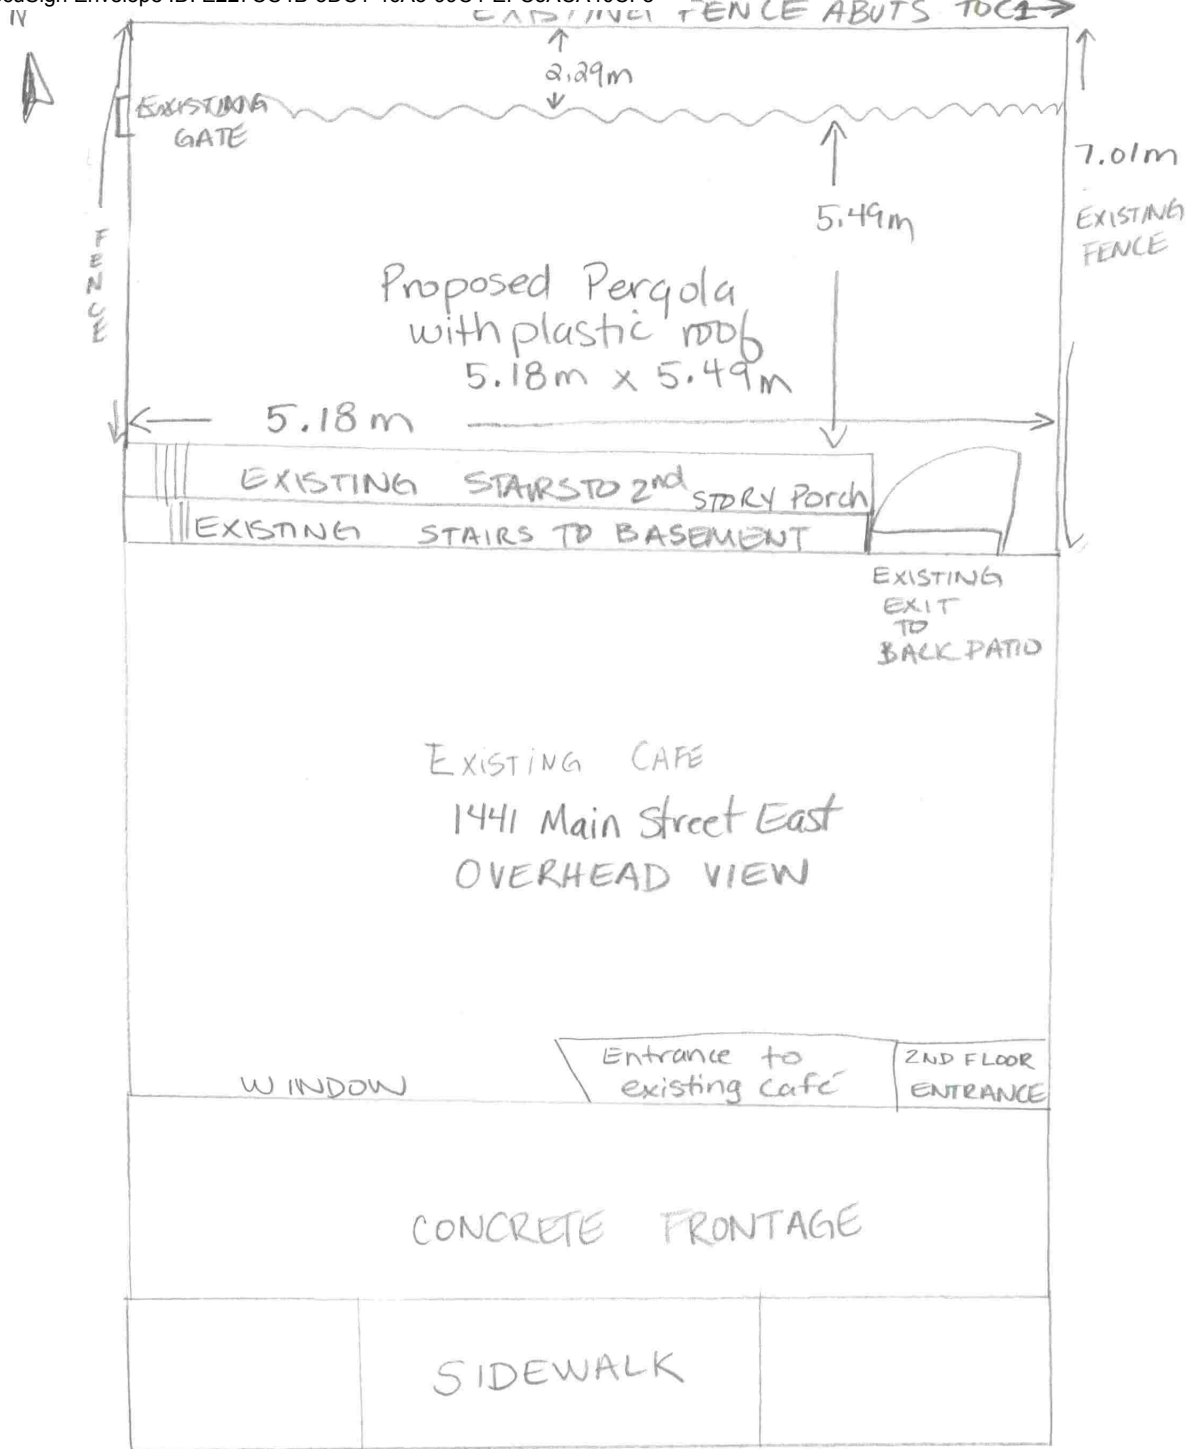 N
FENCE ABUTS TO C1
2.29m
EXISTING
GATE
7.01m
5.49m
EXISTING
FENCE
FENCE
Proposed Pergola
with plastic roof
5.18m x 5.49m
5.18m
EXISTING STAIRS TO 2nd STORY Porch
EXISTING STAIRS TO BASEMENT
EXISTING
EXIT
TO
BACK PATIO
EXISTING CAFE
1441 Main Street East
OVERHEAD VIEW
Entrance to
existing café
2ND FLOOR
ENTRANCE
WINDOW
CONCRETE FRONTAGE
SIDEWALK